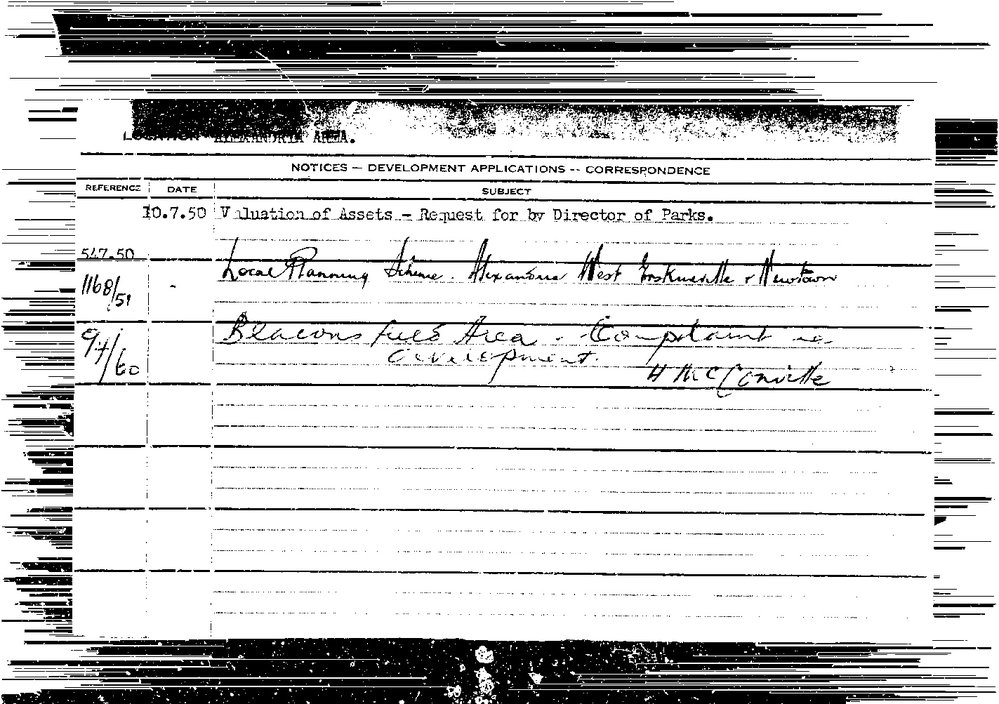 LOCATION ALEXANDRIA AREA.
NOTICES — DEVELOPMENT APPLICATIONS -- CORRESPONDENCE
REFERENCE DATE SUBJECT
10.7.50 Valuation of Assets - Request for by Director of Parks.
547.50
1168/51 Local Planning Scheme. Alexandria West Erskineville & Newtown
94/60 Beaconsfield Area - Complaint re
development.
H McConville